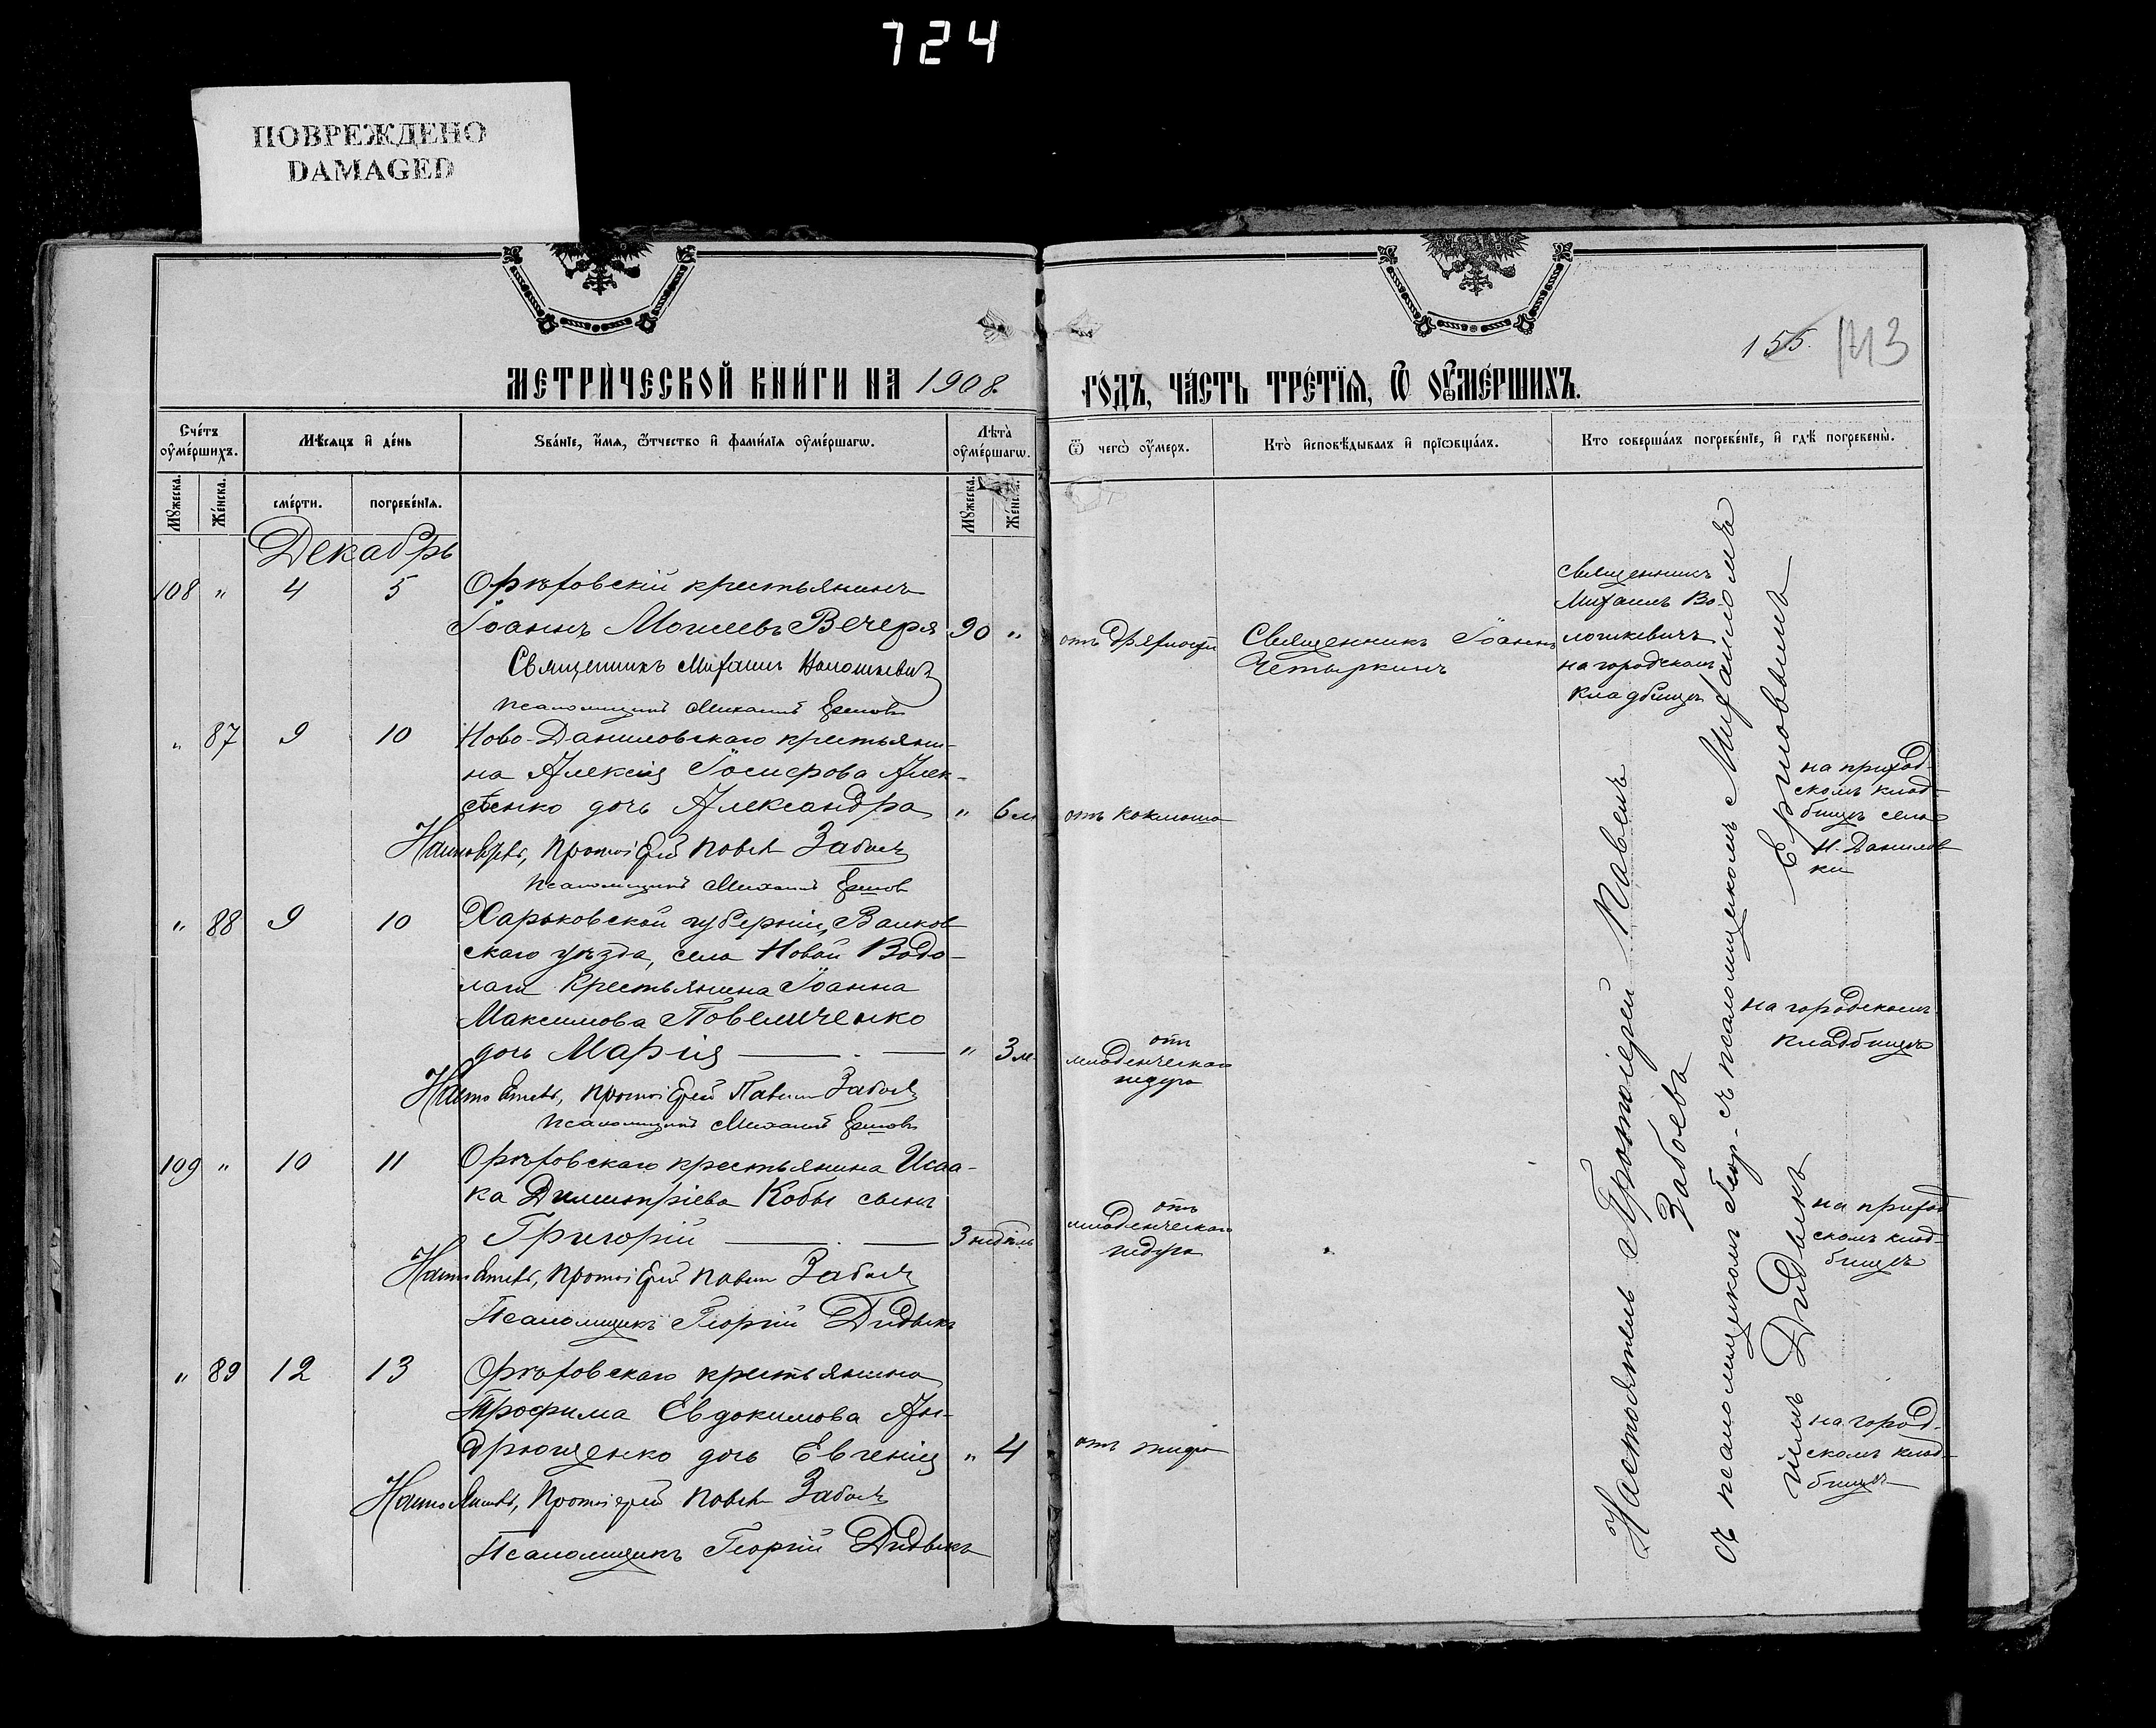 724
ПОВРЕЖДЕНО
DAMAGED
155.
МЕТРИ́ЧЕСКОЙ КНИ́ГИ НА 1908.
ГО́ДЪ, ЧА́СТЬ ТРЕ́ТЇѦ, Ѿ ОУ҆МЕ́РШИХЪ.
Сче́тъ оу҆ме́ршихъ.
Мѣ́сѧцъ и҆ де́нь
Ѕва́нїе, и҆́мѧ, ѻ҆́тчество и҆ фами́лїѧ оу҆ме́ршагѡ.
Лѣ́та оу҆ме́ршагѡ.
Ѿ чегѡ̀ оу҆́меръ.
Кто̀ и҆сповѣ́дывалъ и҆ прїѡбща́лъ.
Кто соверша́лъ погребе́нїе, и҆ гдѣ̀ погребены̀.
Мꙋ́жеска.
Же́нска.
сме́рти.
погребе́нїѧ.
Мꙋ́жеска.
Же́нска.
Декабрь
108 " 4 5 Орѣховскій крестьянинъ
Іоаннъ Моисеевъ Вечеря 90 "
Священникъ Михаилъ Волошкевичъ
Псаломщикъ Михаилъ Ершовъ
отъ дряхлости
Священникъ Іоаннъ
Четыркинъ
Священникъ
Михаилъ Во-
лошкевичъ
на городскомъ
кладбищѣ
" 87 9 10 Ново-Даниловскаго крестьяни-
на Алексія Іосифова Алек-
сѣенко дочь Александра " 6 м
Настоятель, Протоіерей Павелъ Забоевъ
Псаломщикъ Михаилъ Ершовъ
отъ коклюша
на приход-
скомъ клад-
бищѣ села
Н. Данилов
ки
" 88 9 10 Харьковской губерніи, Валков
скаго уѣзда, села Новой Водо-
лаги крестьянина Іоанна
Максимова Повеличенко
дочь Марія " 3 м
Настоятель, Протоіерей Павелъ Забоевъ
Псаломщикъ Михаилъ Ершовъ
отъ
младенческаго
недуга
на городскомъ
кладбищѣ
109 " 10 11 Орѣховскаго крестьянина Исаа-
ка Димитріева Кобы сынъ
Григорій 3 недѣль
Настоятель, Протоіерей Павелъ Забоевъ
Псаломщикъ Георгій Дидыкъ
отъ
младенческаго
недуга
на приход
скомъ клад-
бищѣ
" 89 12 13 Орѣховскаго крестьянина
Трофима Евдокимова Ан-
дрющенко дочь Евгенія " 4
Настоятель, Протоіерей Павелъ Забоевъ
Псаломщикъ Георгій Дидыкъ
отъ тифа
на город-
скомъ клад-
бищѣ
Настоятель Протоіерей Павелъ
Забоевъ
съ псаломщикомъ Геор- съ псаломщикомъ Михаиломъ
гіемъ Дидыкъ
Ершовымъ